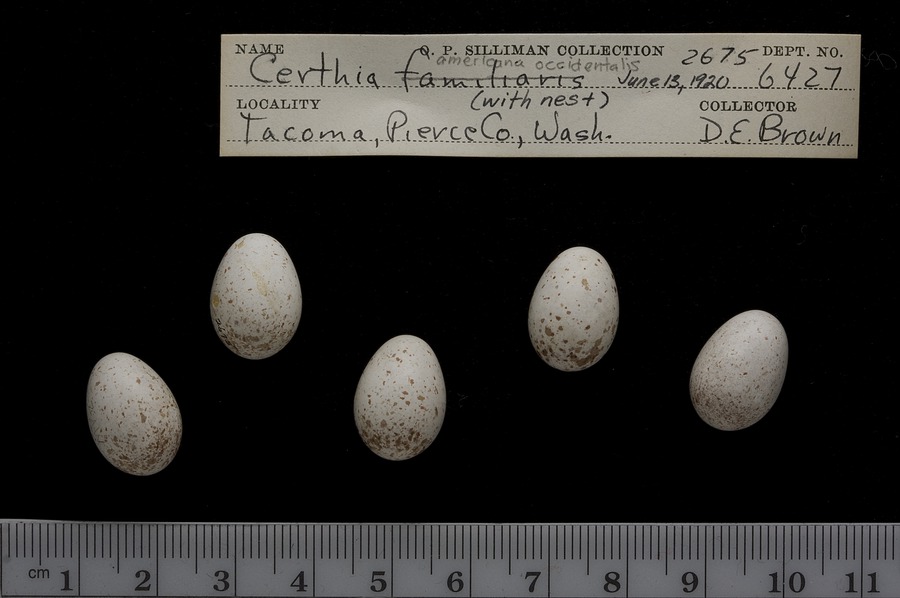 NAME O. P. SILLIMAN COLLECTION 2675 DEPT. NO.
americana occidentalis
Certhia familiaris June 13, 1920 6427
LOCALITY (with nest) COLLECTOR
Tacoma, Pierce Co., Wash. D.E. Brown
cm 1 2 3 4 5 6 7 8 9 10 11